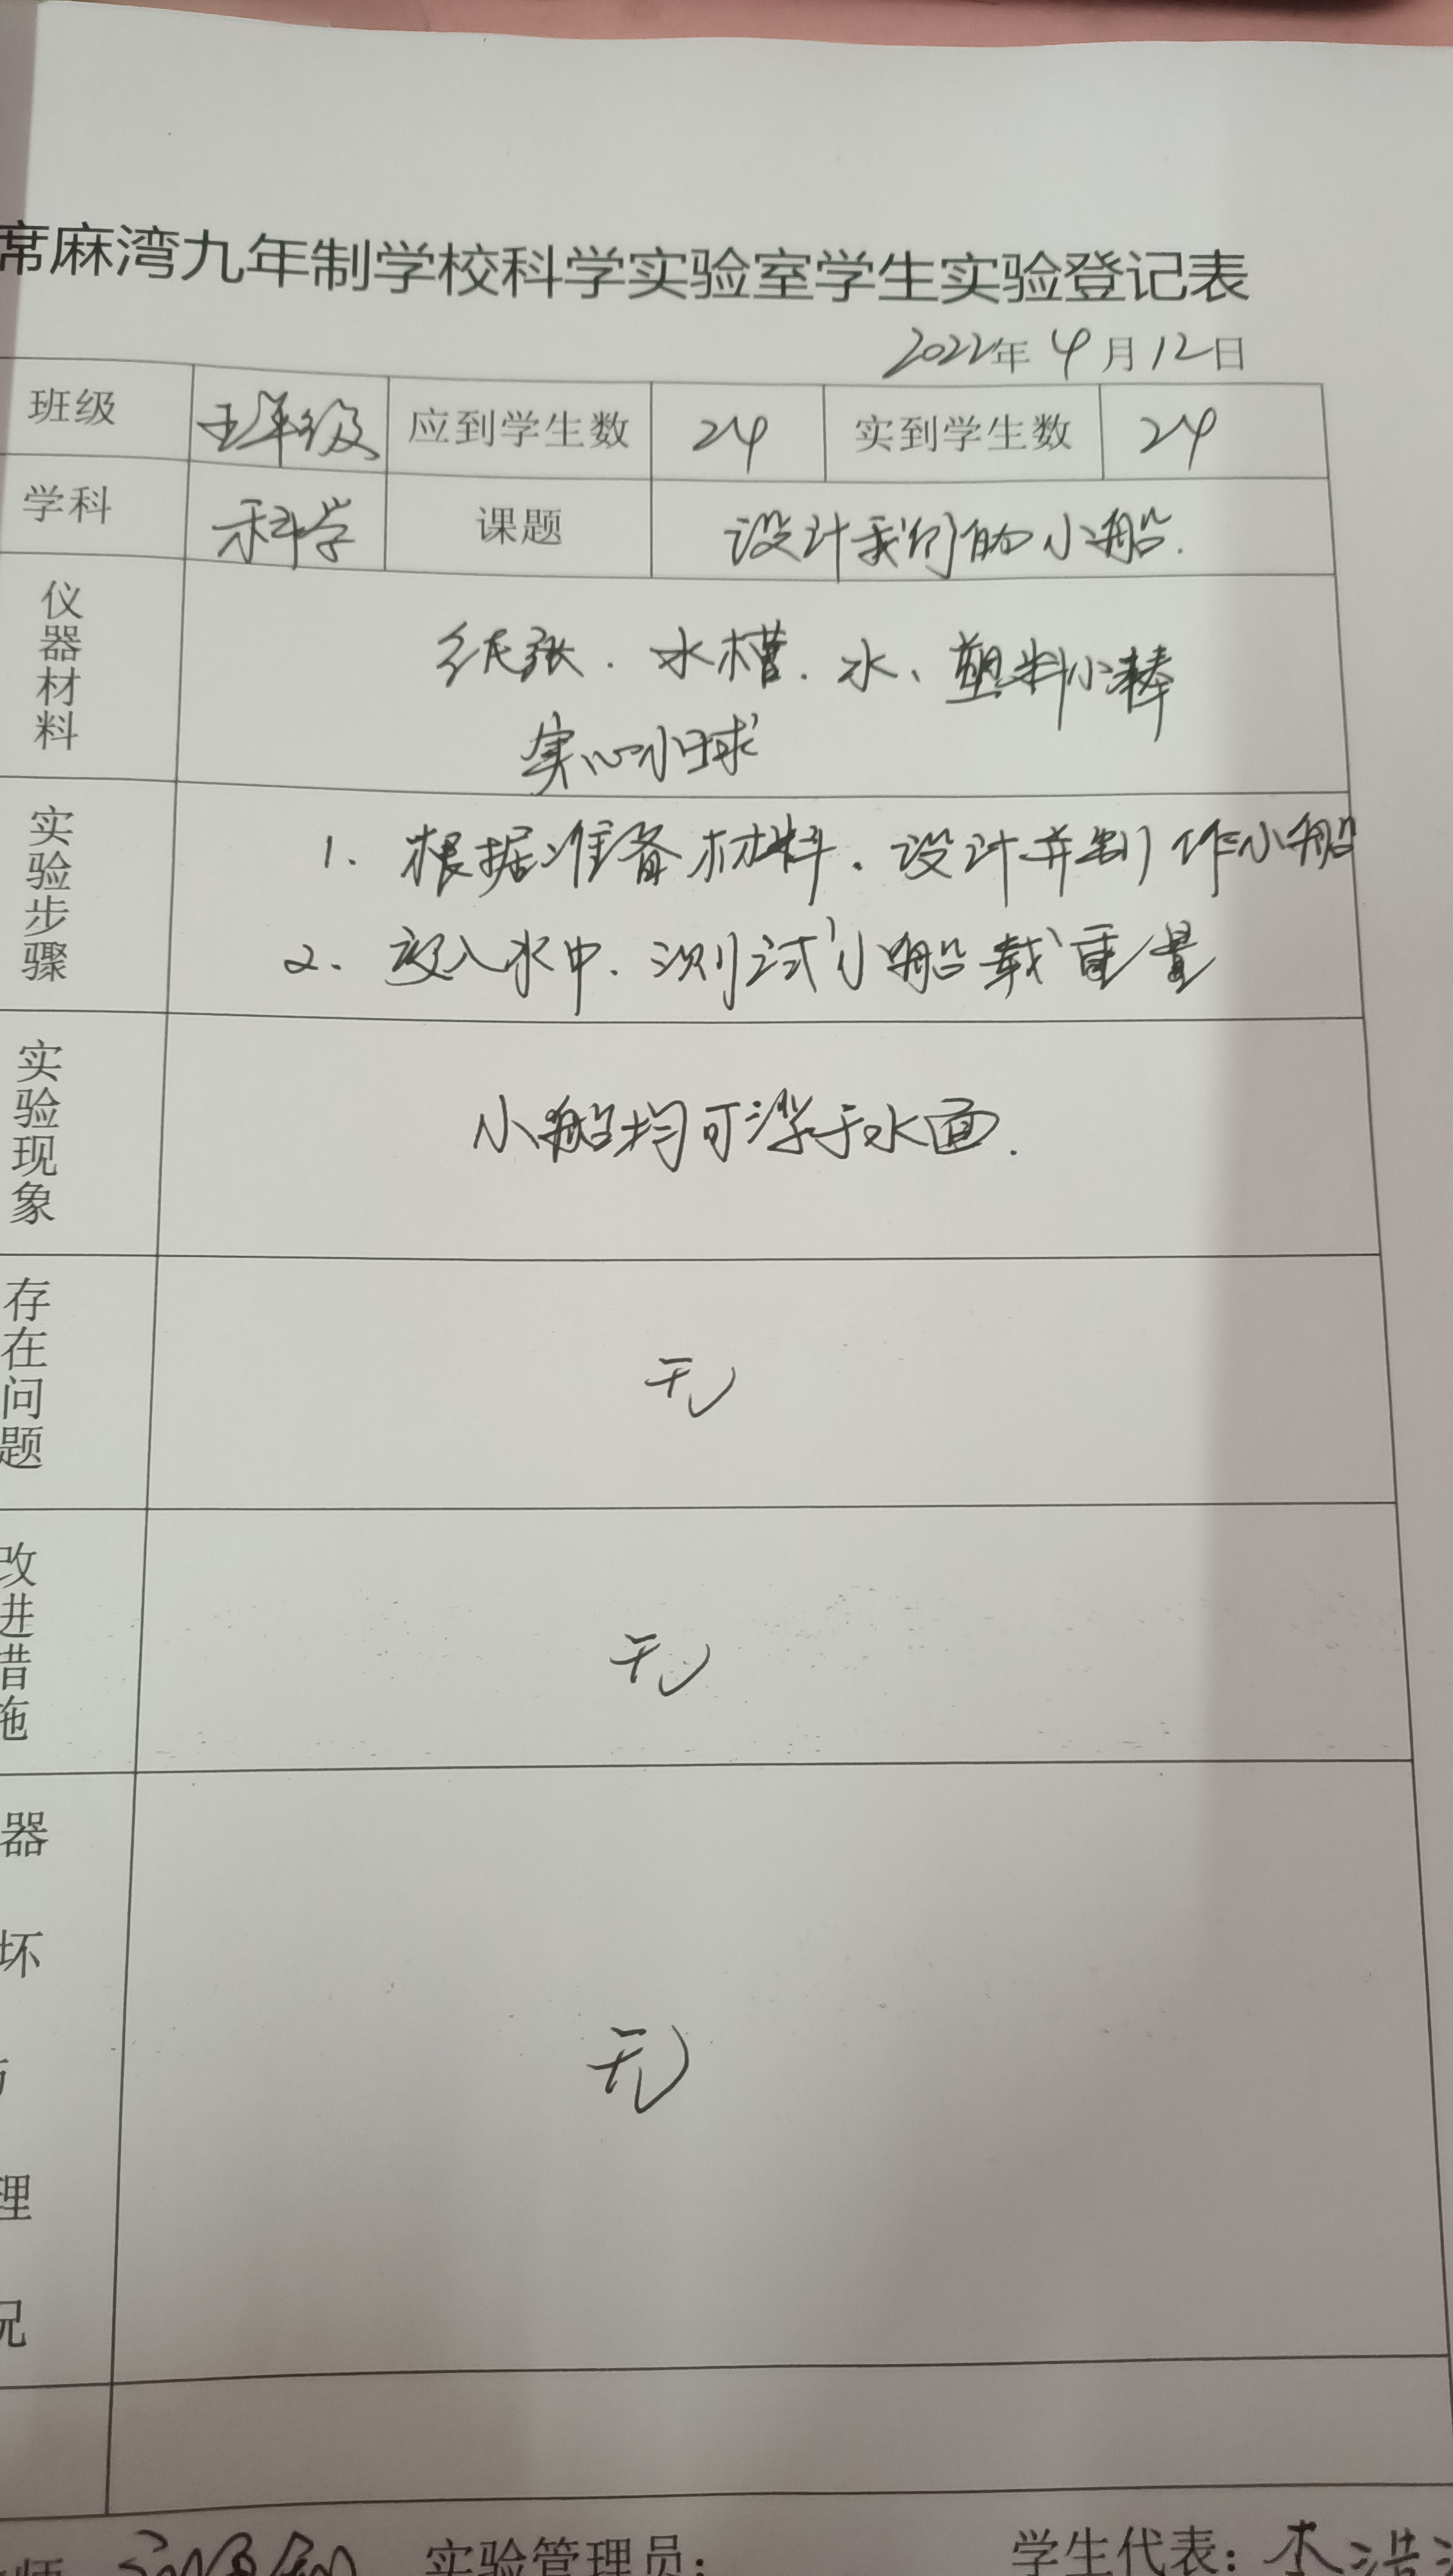 席麻湾九年制学校科学实验室学生实验登记表
2022年4月12日
班级 五年级 应到学生数 24 实到学生数 24
学科 科学 课题 设计我们的小船.
仪器材料
纸张.水槽.水、塑料小棒
实心小球
实验步骤
1.根据准备材料.设计并制作小船
2.放入水中.测试小船载重量
实验现象
小船均可浮于水面.
存在问题
无
改进措施
无
器
坏
理
况
无
师
实验管理员:
学生代表: 李浩